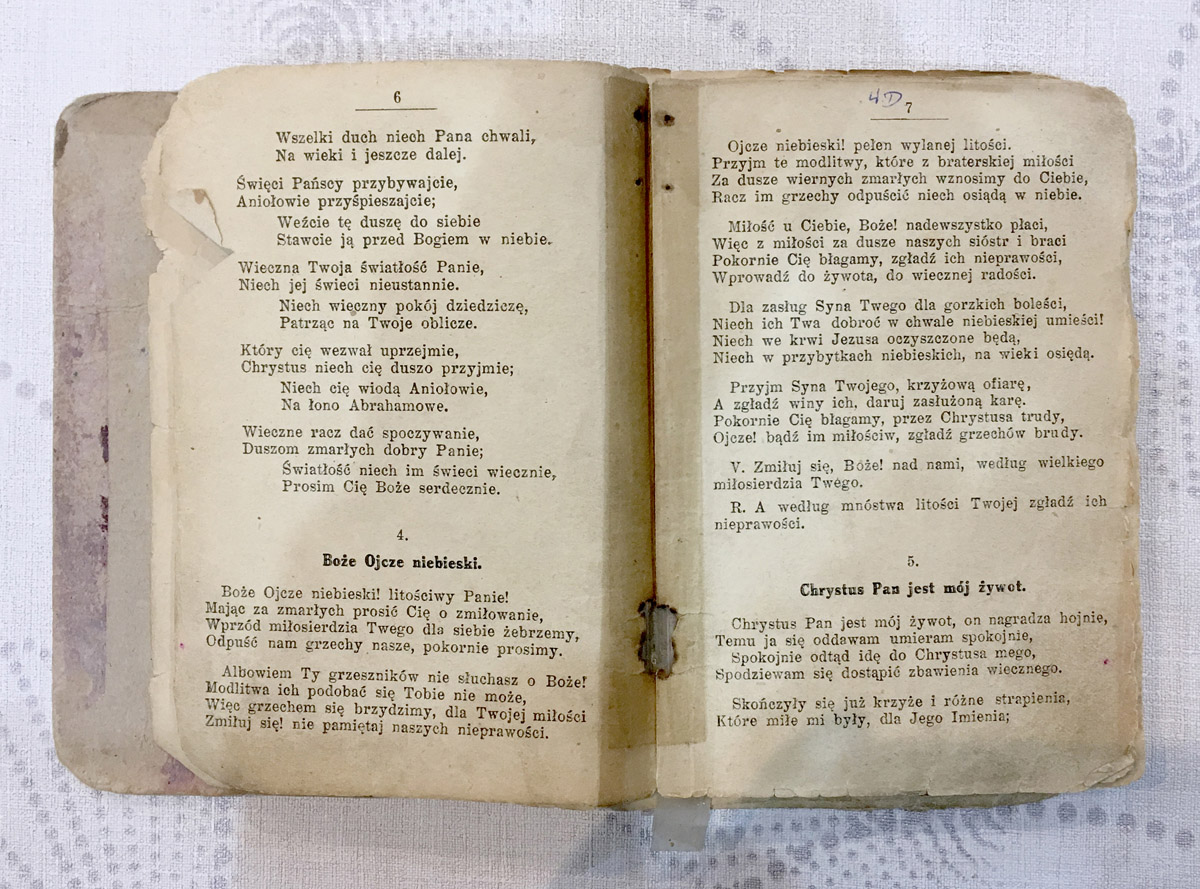 6
Wszelki duch niech Pana chwali,
Na wieki i jeszcze dalej.
Święci Pańscy przybywajcie,
Aniołowie przyśpieszajcie;
Weźcie tę duszę do siebie
Stawcie ją przed Bogiem w niebie.
Wieczna Twoja światłość Panie,
Niech jej świeci nieustannie.
Niech wieczny pokój dziedziczę,
Patrząc na Twoje oblicze.
Który cię wezwał uprzejmie,
Chrystus niech cię duszo przyjmie;
Niech cię wiodą Aniołowie,
Na łono Abrahamowe.
Wieczne racz dać spoczywanie,
Duszom zmarłych dobry Panie;
Światłość niech im świeci wiecznie,
Prosim Cię Boże serdecznie.
4.
Boże Ojcze niebieski.
Boże Ojcze niebieski! litościwy Panie!
Mając za zmarłych prosić Cię o zmiłowanie,
Wprzód miłosierdzia Twego dla siebie żebrzemy,
Odpuść nam grzechy nasze, pokornie prosimy.
Albowiem Ty grzeszników nie słuchasz o Boże!
Modlitwa ich podobać się Tobie nie może,
Więc grzechem się brzydzimy, dla Twojej miłości
Zmiłuj się! nie pamiętaj naszych nieprawości.
4D
7
Ojcze niebieski! pełen wylanej litości.
Przyjm te modlitwy, które z braterskiej miłości
Za dusze wiernych zmarłych wznosimy do Ciebie,
Racz im grzechy odpuścić niech osiądą w niebie.
Miłość u Ciebie, Boże! nadewszystko płaci,
Więc z miłości za dusze naszych sióstr i braci
Pokornie Cię błagamy, zgładź ich nieprawości,
Wprowadź do żywota, do wiecznej radości.
Dla zasług Syna Twego dla gorzkich boleści,
Niech ich Twa dobroć w chwale niebieskiej umieści!
Niech we krwi Jezusa oczyszczone będą,
Niech w przybytkach niebieskich, na wieki osiędą.
Przyjm Syna Twojego, krzyżową ofiarę,
A zgładź winy ich, daruj zasłużoną karę.
Pokornie Cię błagamy, przez Chrystusa trudy,
Ojcze! bądź im miłościw, zgładź grzechów brudy.
V. Zmiłuj się, Boże! nad nami, według wielkiego
miłosierdzia Twego.
R. A według mnóstwa litości Twojej zgładź ich
nieprawości.
5.
Chrystus Pan jest mój żywot.
Chrystus Pan jest mój żywot, on nagradza hojnie,
Temu ja się oddawam umieram spokojnie,
Spokojnie odtąd idę do Chrystusa mego,
Spodziewam się dostąpić zbawienia wiecznego.
Skończyły się już krzyże i różne strapienia,
Które miłe mi były, dla Jego Imienia;